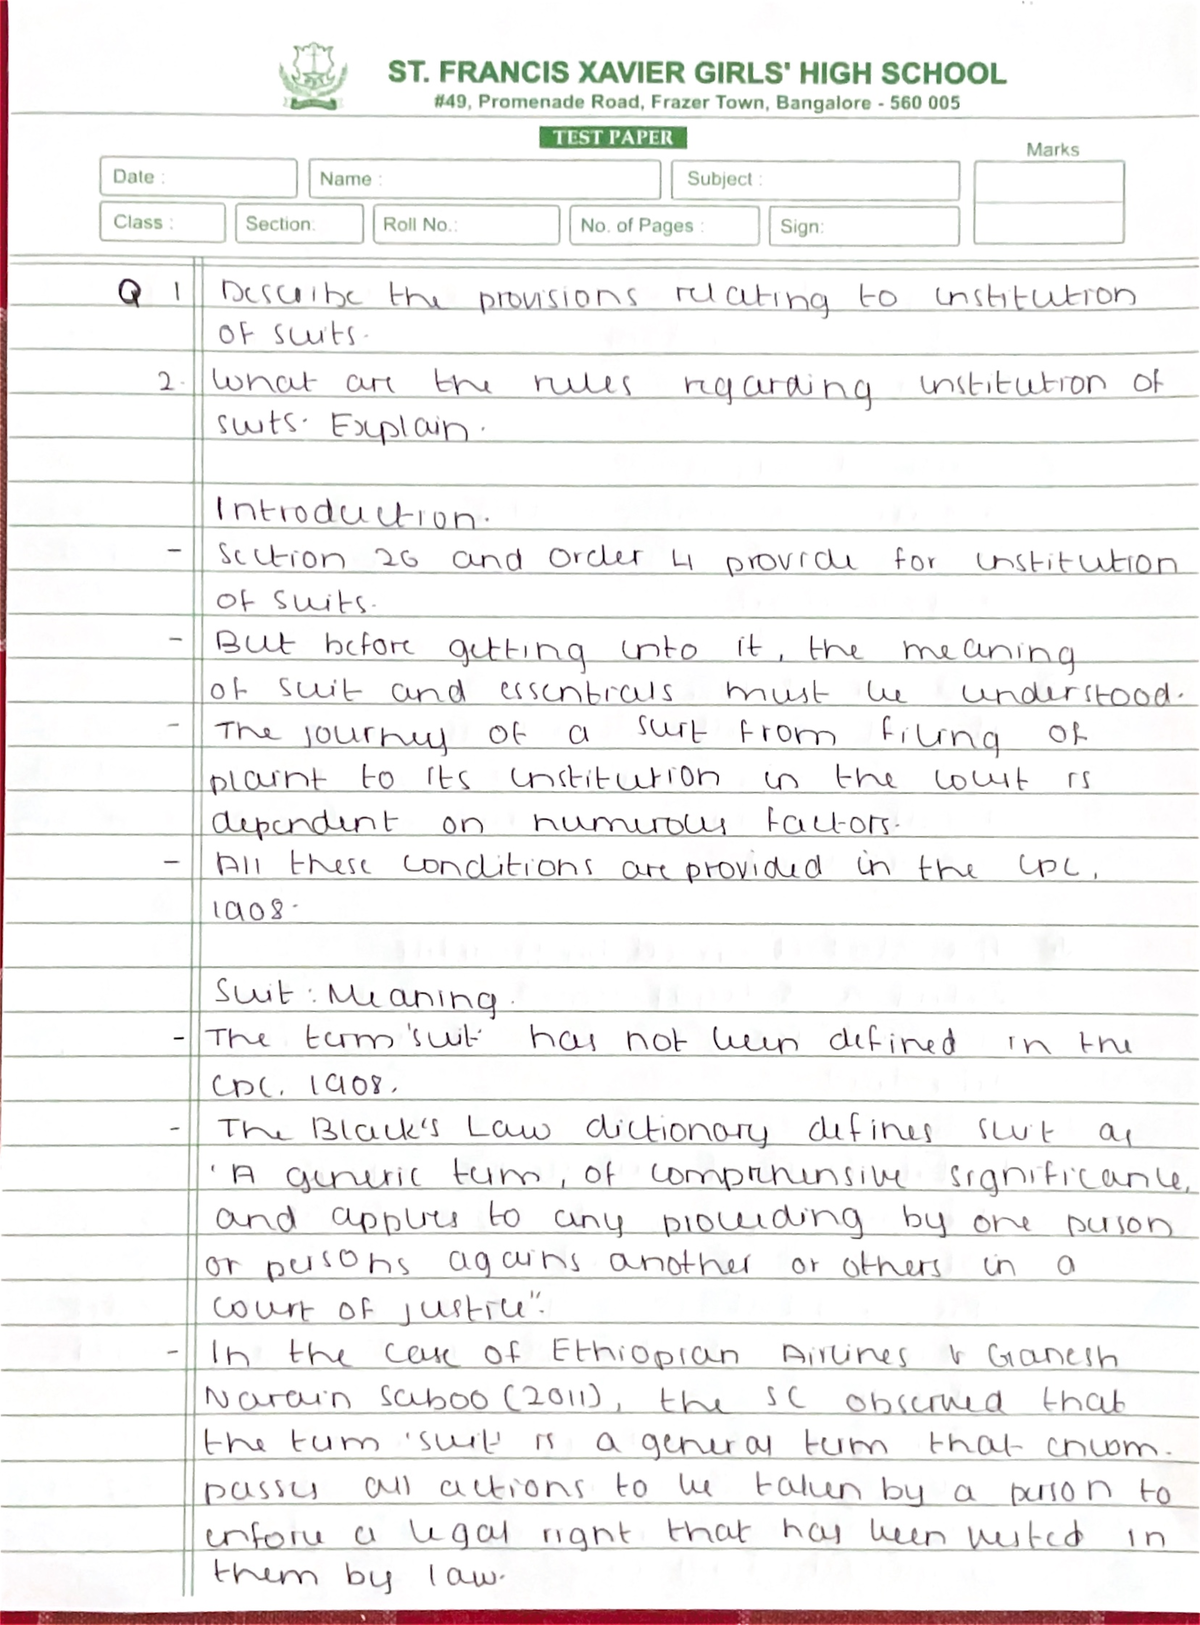 ST. FRANCIS XAVIER GIRLS' HIGH SCHOOL
#49, Promenade Road, Frazer Town, Bangalore - 560 005
TEST PAPER
Marks
Date : Name : Subject :
Class : Section: Roll No.: No. of Pages : Sign:
Q 1 Describe the provisions relating to institution
of suits.
2. What are the rules regarding institution of
suits. Explain.
Introduction.
- Section 26 and Order 4 provide for institution
of suits.
- But before getting into it, the meaning
of suit and essentials must be understood.
- The journey of a suit from filing of
plaint to its institution in the court is
dependent on numerous factors.
- All these conditions are provided in the CPC,
1908.
Suit : Meaning.
- The term 'suit' has not been defined in the
CPC, 1908.
- The Black's Law dictionary defines suit as
'A generic term, of comprehensive significance,
and applies to any proceeding by one person
or persons agains another or others in a
court of justice".
- In the case of Ethiopian Airlines v Ganesh
Narain Saboo (2011), the SC observed that
the term 'suit' is a general term that encom-
passes all actions to be taken by a person to
enforce a legal right that has been vested in
them by law.